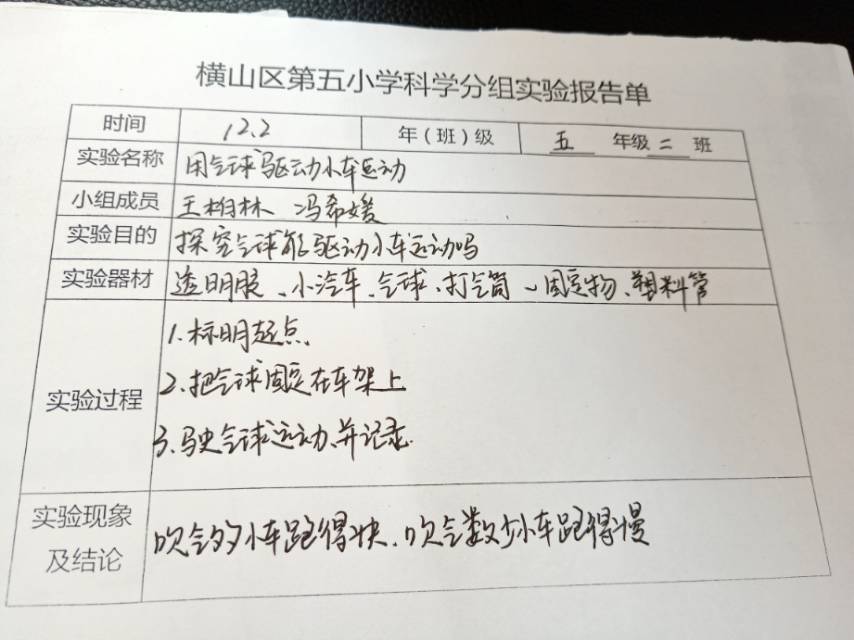 横山区第五小学科学分组实验报告单
时间 12.2 年(班)级 五 年级 二 班
实验名称 用气球驱动小车运动
小组成员 王柏林 冯希媛
实验目的 探究气球能驱动小车运动吗
实验器材 透明胶、小汽车、气球、打气筒、固定物、塑料管
实验过程
1.标明起点.
2.把气球固定在车架上
3.驶气球运动、并记录.
实验现象及结论
吹气多小车跑得快.吹气数少小车跑得慢